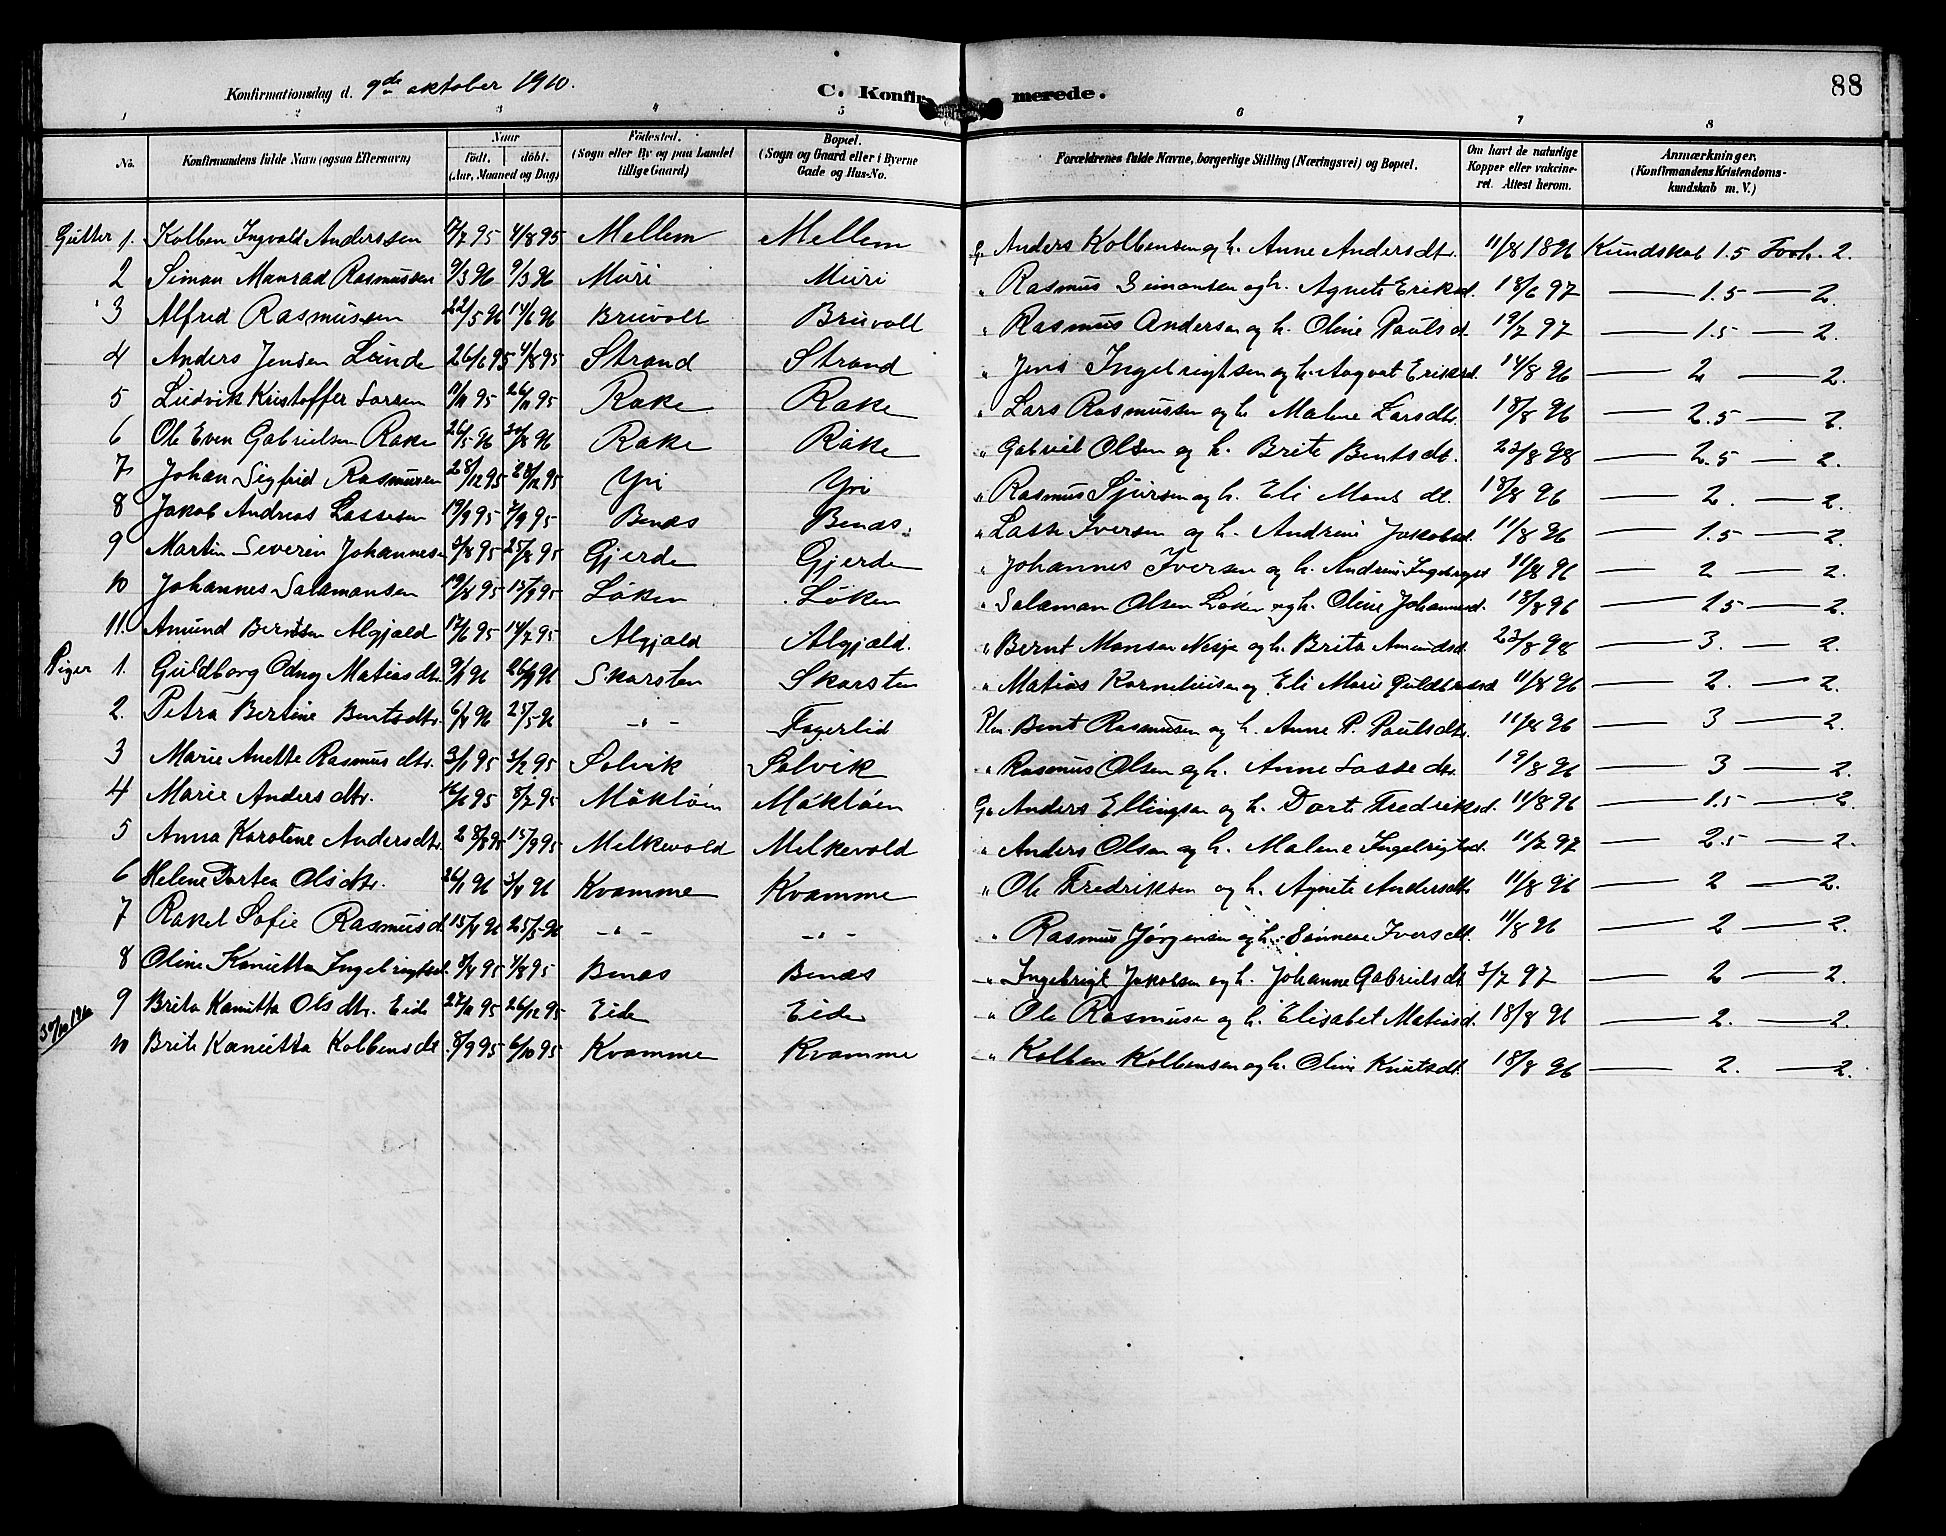 88
Konfirmationsdag d. 9de oktober 1910.
C. Konfirmerede.
1 2 3 4 5 6 7 8
No. Konfirmandens fulde Navn (ogsaa Efternavn) Naar födt. döbt. (Aar, Maaned og Dag) Födested. (Sogn eller By og paa Landet tillige Gaard) Bopæl. (Sogn og Gaard eller i Byerne Gade og Hus-No. Forældrenes fulde Navne, borgerlige Stilling (Næringsvei) og Bopæl. Om havt de naturlige Kopper eller vakcineret. Attest herom. Anmærkninger. (Konfirmandens Kristendomskundskab m. V.)
Gutter 1. Kolben Ingvald Anderssen 95 4/8 95 Mellem Mellem Anders Kolbensen og h. Anne Andersdt. 11/8 1896 Kundskab 1.5 Forh. 2.
2 Simon Monrad Rasmussen 9/3 96 9/3 96 Muri Muri " Rasmus Simonsen og h. Agnete Eriksd. 18/6 97 — 1.5 — 2.
3 Alfred Rasmussen 22/5 96 14/6 96 Bruvoll Bruvoll " Rasmus Andersen og h. Oline Paulsd. 19/7 97 — 1.5 — 2.
4 Anders Jensen Lunde 26/6 95 4/8 95 Strand Strand " Jens Ingebrigtsen og h. Eriksd. 14/8 96 — 2 — 2.
5 Ludvik Kristoffer Larsen 11/11 95 26/11 95 Rake Rake " Lars Rasmussen og h. Malene Larsdt. 18/8 96 — 2.5 — 2.
6 Ole Even Gabrielsen Rake 26/5 96 96 Rake Rake " Gabriel Olsen og h. Brite Bentsdt. 23/8 98 — 2.5 — 2.
7 Johan Sigfrid Rasmussen 28/12 95 28/12 95 Yri Yri " Rasmus Sjursen og h. Eli Mons dt. 18/8 96 — 2. — 2.
8 Jakob Andreas Lassesen 95 95 Benæs Benæs. " Lasse Iversen og h. Andrine Jakobsd. 11/8 96 — 1.5 — 2.
9 Martin Severin Johannesen 95 25/8 95 Gjerde Gjerde " Johannes Iversen og h. 11/8 96 — 2 — 2.
10 Johannes Salamonsen 95 15/9 95 Løken Løken " Salamon Olsen Løken og h. Oline Johannesd. 18/8 96 — 2.5 — 2.
11. Amund Berntsen Algjæld 17/6 95 14/7 95 Algjæld Algjæld. " Bernt Monsen Nesje og h. Brita Amundsd. 23/8 98 — 3. — 2.
Piger 1. Guldborg Odny Matiasdtr. 96 96 Skarsten Skarsten " Matias Korneliusen og Eli Marie Guldbrandsd 11/8 96 — 2. — 2.
2. Petra Bertine Bentsdtr. 6/4 96 25/5 96 — " — Fagerlid Bent Rasmussen og h. Anne P. Paulsdtr. 11/8 96 — 3 — 2.
3 Marie Anette Rasmusdtr. 95 95 Solvik Solvik " Rasmus Olsen og h. Anne Lassedtr. 19/8 96 — 3 — 2.
4 Marie Andersdtr. 16/6 95 8/7 95 Mökløen Mökløen Anders Ellingsen og h. Dorte Fredriksd. 11/8 96 — 1.5 — 2.
5 Anna Karoline Andersdtr. 28/8 95 15/9 95 Melkevold Melkevold " Anders Olsen og h. Malene Ingebrigtsd. 11/7 97 — 2.5 — 2.
6 Helene Dortea Olsdtr. 26/1 96 3/4 96 Kvamme Kvamme " Ole Fredriksen og h. Agnete Andersdtr. 11/8 96 — 2 — 2.
7 Rakel Sofie Rasmusd. 15/4 96 25/5 96 — " — — " — " Rasmus Jørgensen og h. Sønneve Iversdt. 11/8 96 — 2 — 2.
8 Oline Kanutta Ingebrigtsd. 95 4/8 95 Benæs Benæs " Ingebrigt Jakobsen og h. Johanne Gabrielsdt. 3/7 97 — 2 — 2.
9 Brita Kanutta Olsdtr. Eide 95 26/12 95 Eide Eide " Ole Rasmusen og h. Elisabet Matiasd. 18/8 96 — 2. — 2.
30/10 1910 10 Brite Kanutta Kolbensdt. 8/9 95 6/10 95 Kvamme Kvamme " Kolben Kolbensen og h. Oline Knutsdt. 18/8 96 — 2. — 2.